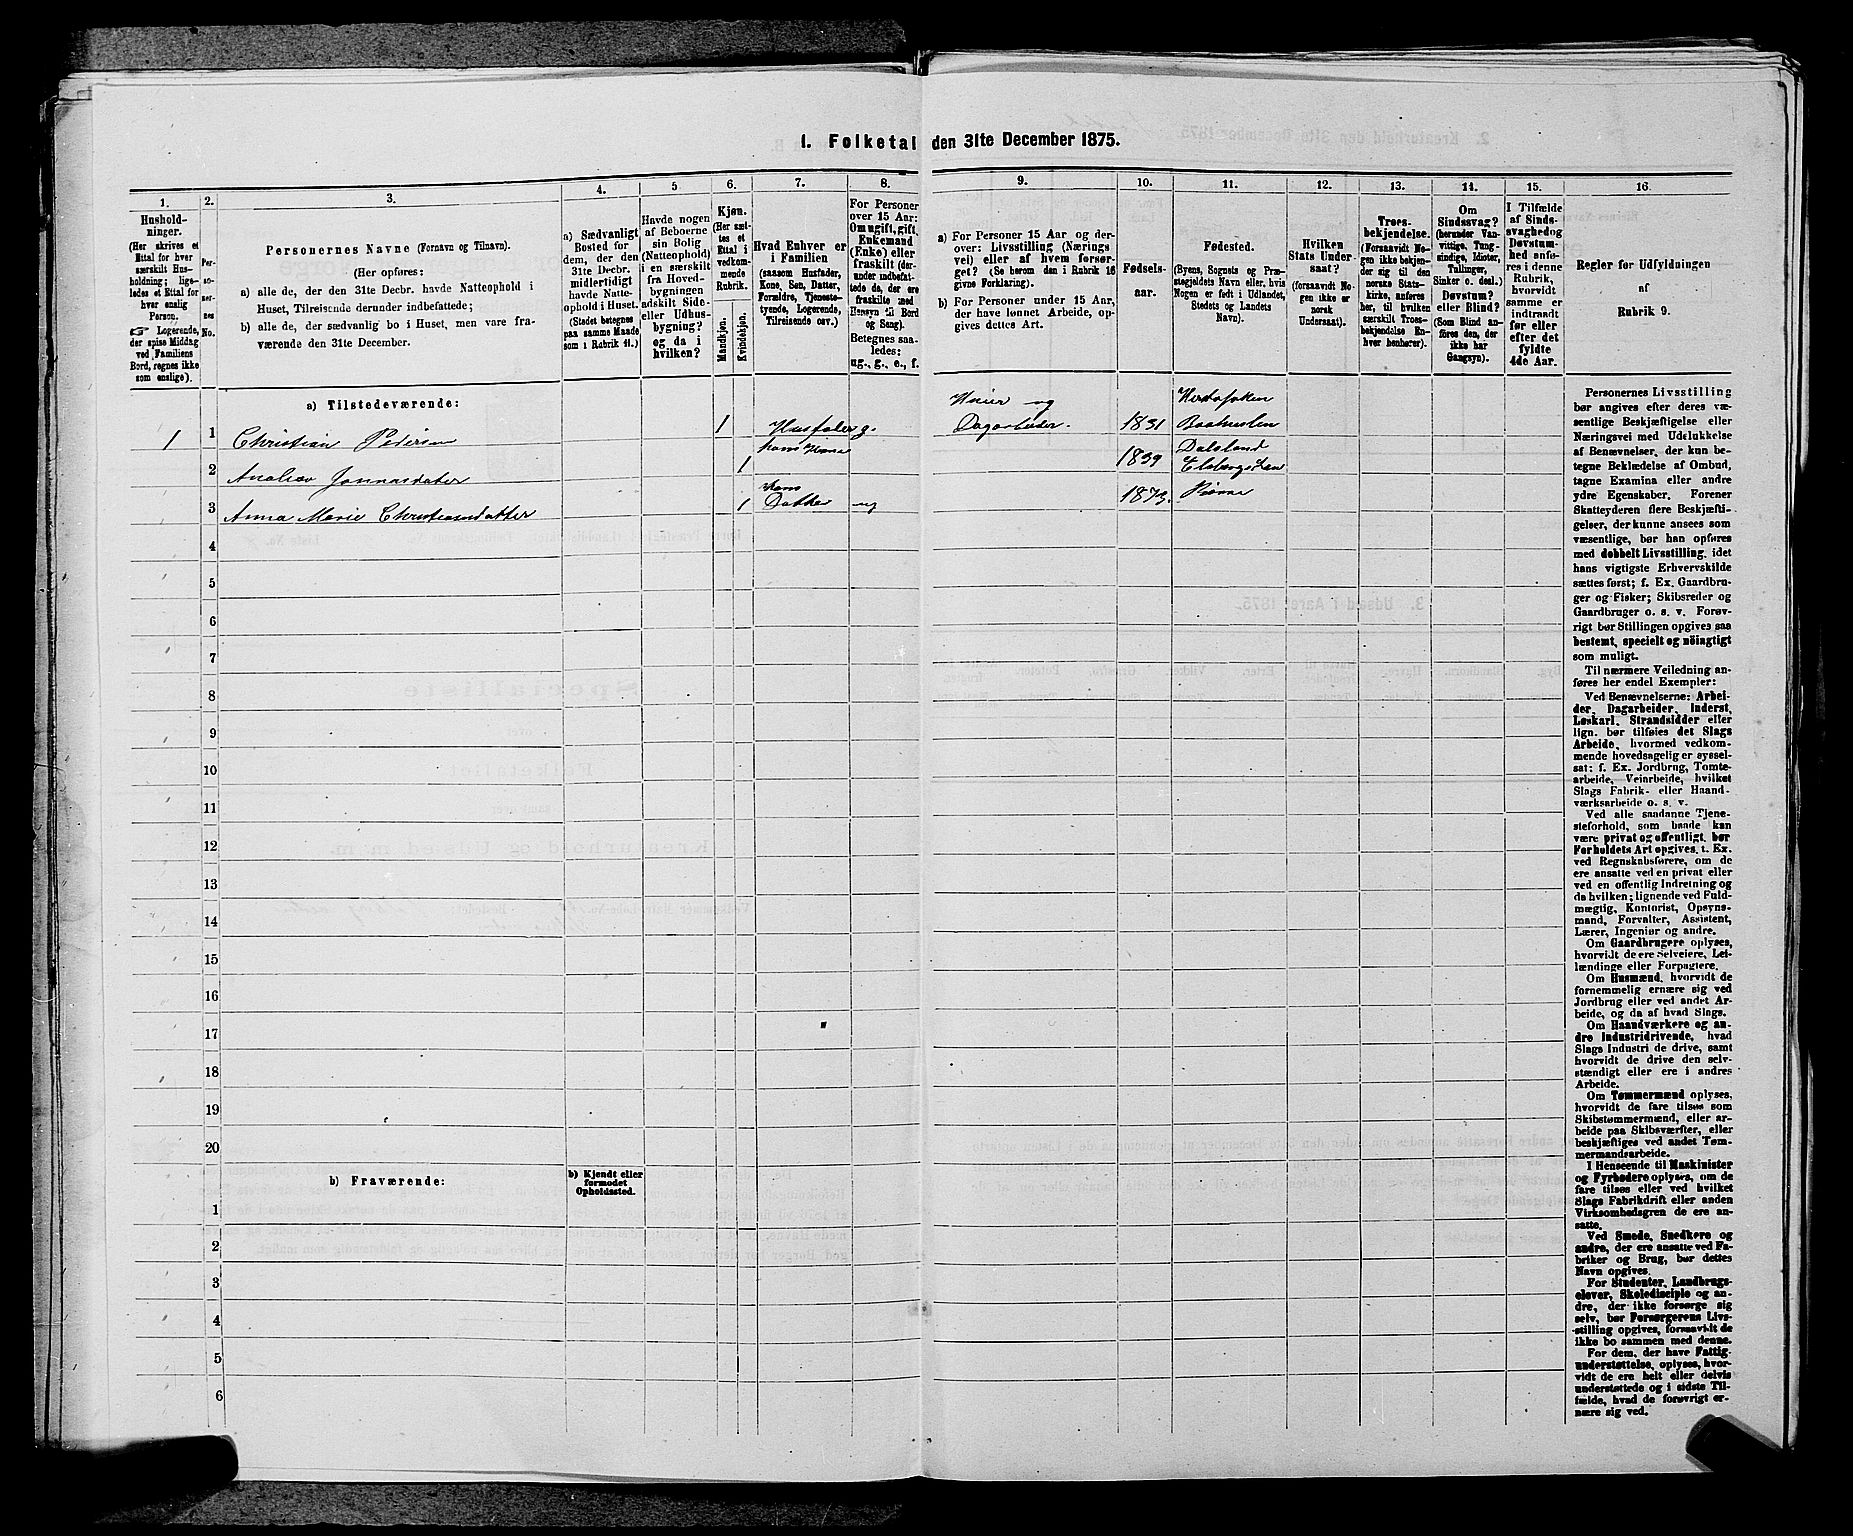 1. Folketal den 31te December 1875.
1.
2.
3.
4.
5
6.
7.
8.
9.
10.
11.
12.
13.
14.
15.
16.
Hushold-
ninger.
(Her skrives et
Ettal for hver
særskilt Hus-
holdning; lige-
ledes et Ettal for
hver enslig
Person.
☞ Logerende,
der spise Middag
ved Familiens
Bord, regnes ikke
som enslige).
Per-
so-
ner-
nes
No.
Personernes Navne (Fornavn og Tilnavn).
(Her opføres:
a) alle de, der den 31te Decbr. havde Natteophold i
Huset, Tilreisende derunder indbefattede;
b) alle de, der sædvanlig bo i Huset, men vare fra-
værende den 31te December.
a) Sædvanligt
Bosted for
dem, der den
31te Decbr.
midlertidigt
havde Natte-
ophold i Huset.
(Stedet betegnes
paa samme Maade
som i Rubrik 11.)
Havde nogen
af Beboerne
sin Bolig
(Natteophold)
i en særskilt
fra Hoved-
bygningen
adskilt Side-
eller Udhus-
bygning?
og da i
hvilken?
Kjøn.
(Her sæt-
tes et
Ettal i
vedkom-
mende
Rubrik.
Mandkjøn.
Kvindekjøn.
Hvad Enhver er
i Familien
(saasom Husfader,
Kone, Søn, Datter,
Forældre, Tjeneste-
tyende, Logerende,
Tilreisende osv.)
For Personer
over 15 Aar:
Om ugift, gift,
Enkemand
(Enke) eller
fraskilt (der-
under indbefat-
tede de, der ere
fraskilte med
Hensyn til Bord
og Seng).
Betegnes saa-
ledes:
ug., g., e., f.
a) For Personer 15 Aar og der-
over: Livsstilling (Nærings
vei) eller af hvem forsør-
get? (Se herom den i Rubrik 16
givne Forklaring).
b) For Personer under 15 Aar,
der have lønnet Arbeide, op-
gives dettes Art.
Fødsels-
aar.
Fødested.
(Byens, Sognets og Præ-
stegjeldets Navn eller, hvis
Nogen er født i Udlandet,
Stedets og Landets
Navn).
Hvilken
Stats Under-
saat?
(forsaavidt No-
gen ikke er
norsk
Undersaat).
Troes-
bekjendelse.
(Forsaavidt No-
gen ikke bekjen-
der sig til den
norske Stats-
kirke, anføres
her, til hvilken
særskilt Troes-
bekjendelse En-
hver henhører).
Om
Sindssvag?
(herunder Van-
vittige, Idioter,
Tullinger,
Sinker o. desl.)
Døvstum?
eller Blind?
(Som Blind an-
føres den, der
ikke har
Gangsyn).
I Tilfælde
af Sinds-
svaghed og
Døvstum-
hed anfø-
res i denne
Rubrik,
hvorvidt
samme er
indtraadt
før eller
efter det
fyldte
4de Aar.
Regler for Udfyldningen
af
Rubrik 9.
a) Tilstedeværende:
1 1 Christian Pedersen 1 g. og Dagarbeider. 1831
2 1 1839 Dalsland
3 Anna Marie Christiansdatter 1 hans Datter ug 1873.
4
5
6
7
8
9
10
11
12
13
14
15
16
17
18
19
20
b) Fraværende:
b) Kjendt eller
formodet
Opholdssted.
1
2
3
4
5
6
Personernes Livsstilling
bør angives efter deres væ-
sentlige Beskjæftigelse eller
Næringsvei med Udelukkelse
af Benævnelser, der kun be-
tegne Beklædelse af Ombud,
tagne Examina eller andre
ydre Egenskaber. Forener
Skatteyderen flere Beskjæfti-
gelser, der kunne ansees som
væsentlige, bør han opføres
med dobbelt Livsstilling, idet
hans vigtigste Erhvervskilde
sættes først; f. Ex. Gaardbru-
ger og Fisker; Skibsreder og
Gaardbruger o. s. v. Forøv-
rigt bør Stillingen opgives saa
bestemt, specielt og nöiagtigt
som muligt.
Til nærmere Veiledning an-
føres her endel Exempler:
Ved Benævnelserne: Arbei-
der, Dagarbeider, Inderst,
Løskarl, Strandsidder eller
lign. bør tilføies det Slags
Arbeide, hvormed vedkom-
mende hovedsagelig er syssel-
sat; f. Ex. Jordbrug, Tomte-
arbeide, Veiarbeide, hvilket
Slags Fabrik- eller Haand-
værksarbeide o. s. v.
Ved alle saadanne Tjene-
steforhold, som baade kan
være privat og offentligt, bør
Forholdets Art opgives, t. Ex.
ved Regnskabsførere, om de
ere ansatte ved en privat eller
ved en offentlig Indretning og
da hvilken; lignende ved Fuld-
mægtig, Kontorist, Opsyns-
mand, Forvalter, Assistent,
Lærer, Ingeniør og andre.
Om Gaardbrugere oplyses,
hvorvidt de ere Selveiere, Lei-
lændinge eller Forpagtere.
Om Husmænd, hvorvidt de
fornemmelig ernære sig ved
Jordbrug eller ved andet Ar-
beide, og da af hvad Slags.
Om Haandværkere og an-
dre Industridrivende, hvad
Slags Industri de drive, samt
hvorvidt de drive den selv-
stændigt eller ere i andres
Arbeide.
Om Tømmermænd oplyses,
hvorvidt de fare tilsøs som
Skibstømmermænd, eller ar-
beide paa Skibsværfter, eller
beskjæftiges ved andet Tøm-
mermandsarbeide.
I Henseende til Maskinister
og Fyrbødere oplyses, om de
fare tilsøs eller ved hvilket
Slags Fabrikdrift eller anden
Virksomhedsgren de ere an-
satte.
Ved Smede, Snedkere og
andre, der ere ansatte ved Fa-
briker og Brug, bør dettes
Navn opgives.
For Studenter, Landbrugs-
elever, Skoledisciple og an-
dre, der ikke forsørge sig
selv, bør Forsørgerens Livs-
stilling opgives, forsaavidt de
ikke bo sammen med denne.
For dem, der have Fattig-
understøttelse, oplyses, hvor-
vidt de ere helt eller delvis
understøttede og i sidste Til-
fælde, hvad de forøvrigt er-
nære sig ved.